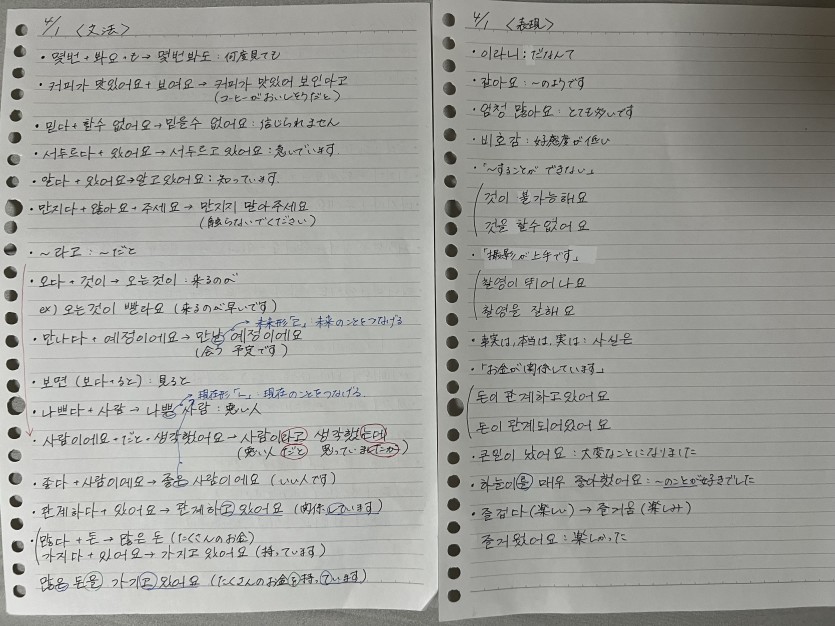 4/1 〈文法〉
・몇번 + 봐요 + も → 몇번 봐도 : 何度見ても
・커피가 맛있어요 + 보여요 → 커피가 맛있어 보인다고
(コーヒーがおいしそうだと)
・믿다 + 할수 없어요 → 믿을수 없어요 : 信じられません
・서두르다 + 있어요 → 서두르고 있어요 : 急いでいます
・알다 + 있어요 → 알고 있어요 : 知っています
・만지다 + 않아요 + 주세요 → 만지지 말아주세요
(触らないでください)
・〜라고 : 〜だと
・오다 + 것이 → 오는것이 : 来るのが
ex) 오는것이 빨라요 (来るのが早いです)
未来形「ㄹ」未来のことをつなげる
・만나다 + 예정이에요 → 만날 예정이에요
(会う 予定です)
・보면 (보다 + ると) : 見ると
現在形「ㄴ」現在のことをつなげる
・나쁘다 + 사람 → 나쁜 사람 : 悪い人
・사람이에요・だと・생각했어요 → 사람이라고 생각했는데
(悪い人だと 思っていましたが)
・좋다 + 사람이에요 → 좋은 사람이에요 (いい人です)
・관계하다 + 있어요 → 관계하고 있어요 (関係しています)
・많다 + 돈 → 많은 돈 (たくさんのお金)
가지다 + 있어요 → 가지고 있어요 (持っています)
많은 돈을 가지고 있어요 (たくさんのお金を持っています)
4/1 〈表現〉
・이라니 : だなんて
・같아요 : 〜のようです
・엄청 많아요 : とても多いです
・비호감 : 好感度が低い
・「〜することができない」
것이 불가능해요
것을 할수없어요
・「撮影が上手です」
촬영이 뛰어나요
촬영을 잘해요
・事実は, 本当は, 実は : 사실은
・「お金が関係しています」
돈이 관계하고있어요
돈이 관계되어있어요
・큰일이 났어요 : 大変なことになりました
・하늘이을 매우 좋아했어요 : 〜のことが好きでした
・즐겁다 (楽しい) → 즐거움 (楽しみ)
즐거웠어요 : 楽しかった